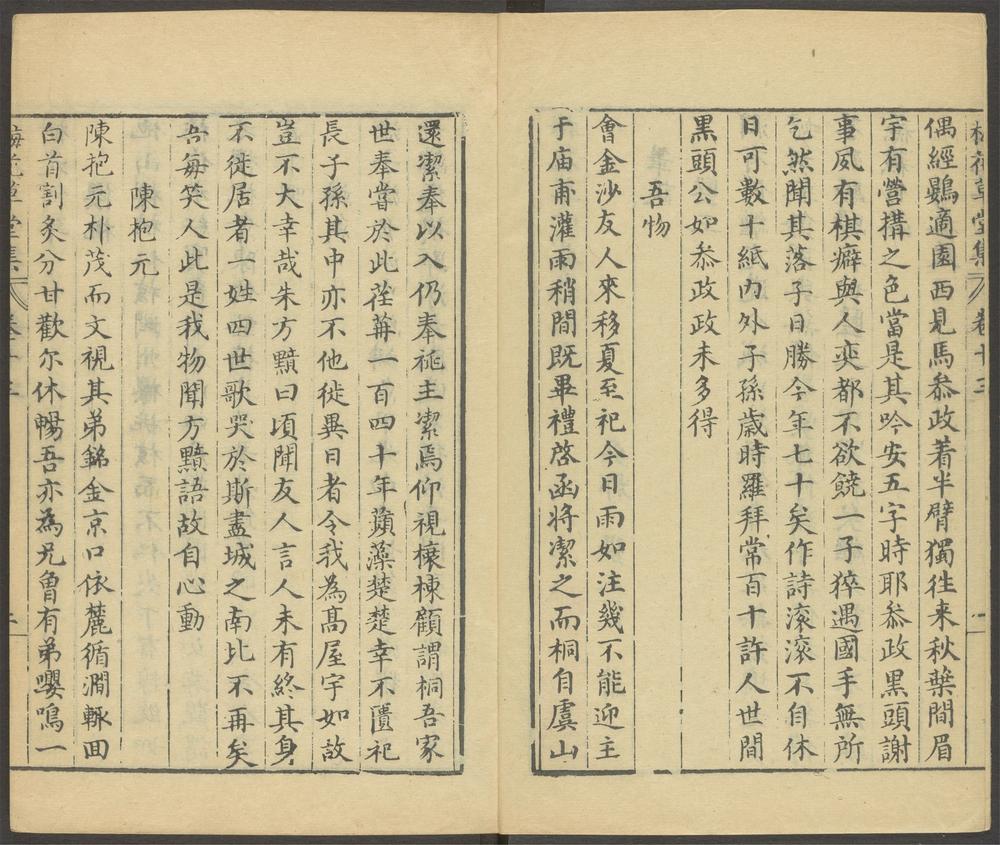 梅花草堂集 卷十三 一
偶經鷃適園西見馬叅政着半臂獨徃来秋葉間眉
宇有營搆之色當是其吟安五字時耶叅政黑頭謝
事夙有棋癖與人奕都不欲饒一子猝遇國手無所
乞然聞其落子日勝今年七十矣作詩滚滚不自休
日可數十紙內外子孫歳時羅拜常百十許人世間
黑頭公如叅政政未多得
吾物
會金沙友人來移夏至祀今日雨如注幾不能迎主
于庙甫灌雨稍間既畢禮啓函將潔之而桐自虞山
還潔奉以入仍奉祧主潔焉仰視榱棟顧謂桐吾家
世奉甞於此茬苒一百四十年蘋藻楚楚幸不匱祀
長子孫其中亦不他徙異日者令我為髙屋宇如故
豈不大幸哉朱方黯曰頃聞友人言人未有終其身
不徙居者一姓四世歌哭於斯盡城之南比不再矣
吾每笑人此是我物聞方黯語故自心動
陳抱元
陳抱元朴茂而文視其弟錦金京口依麓循澗輙囬
白首割炙分甘歡尔休暢吾亦為兄魯有弟嚶鳴一
梅花草堂集 卷十三 二